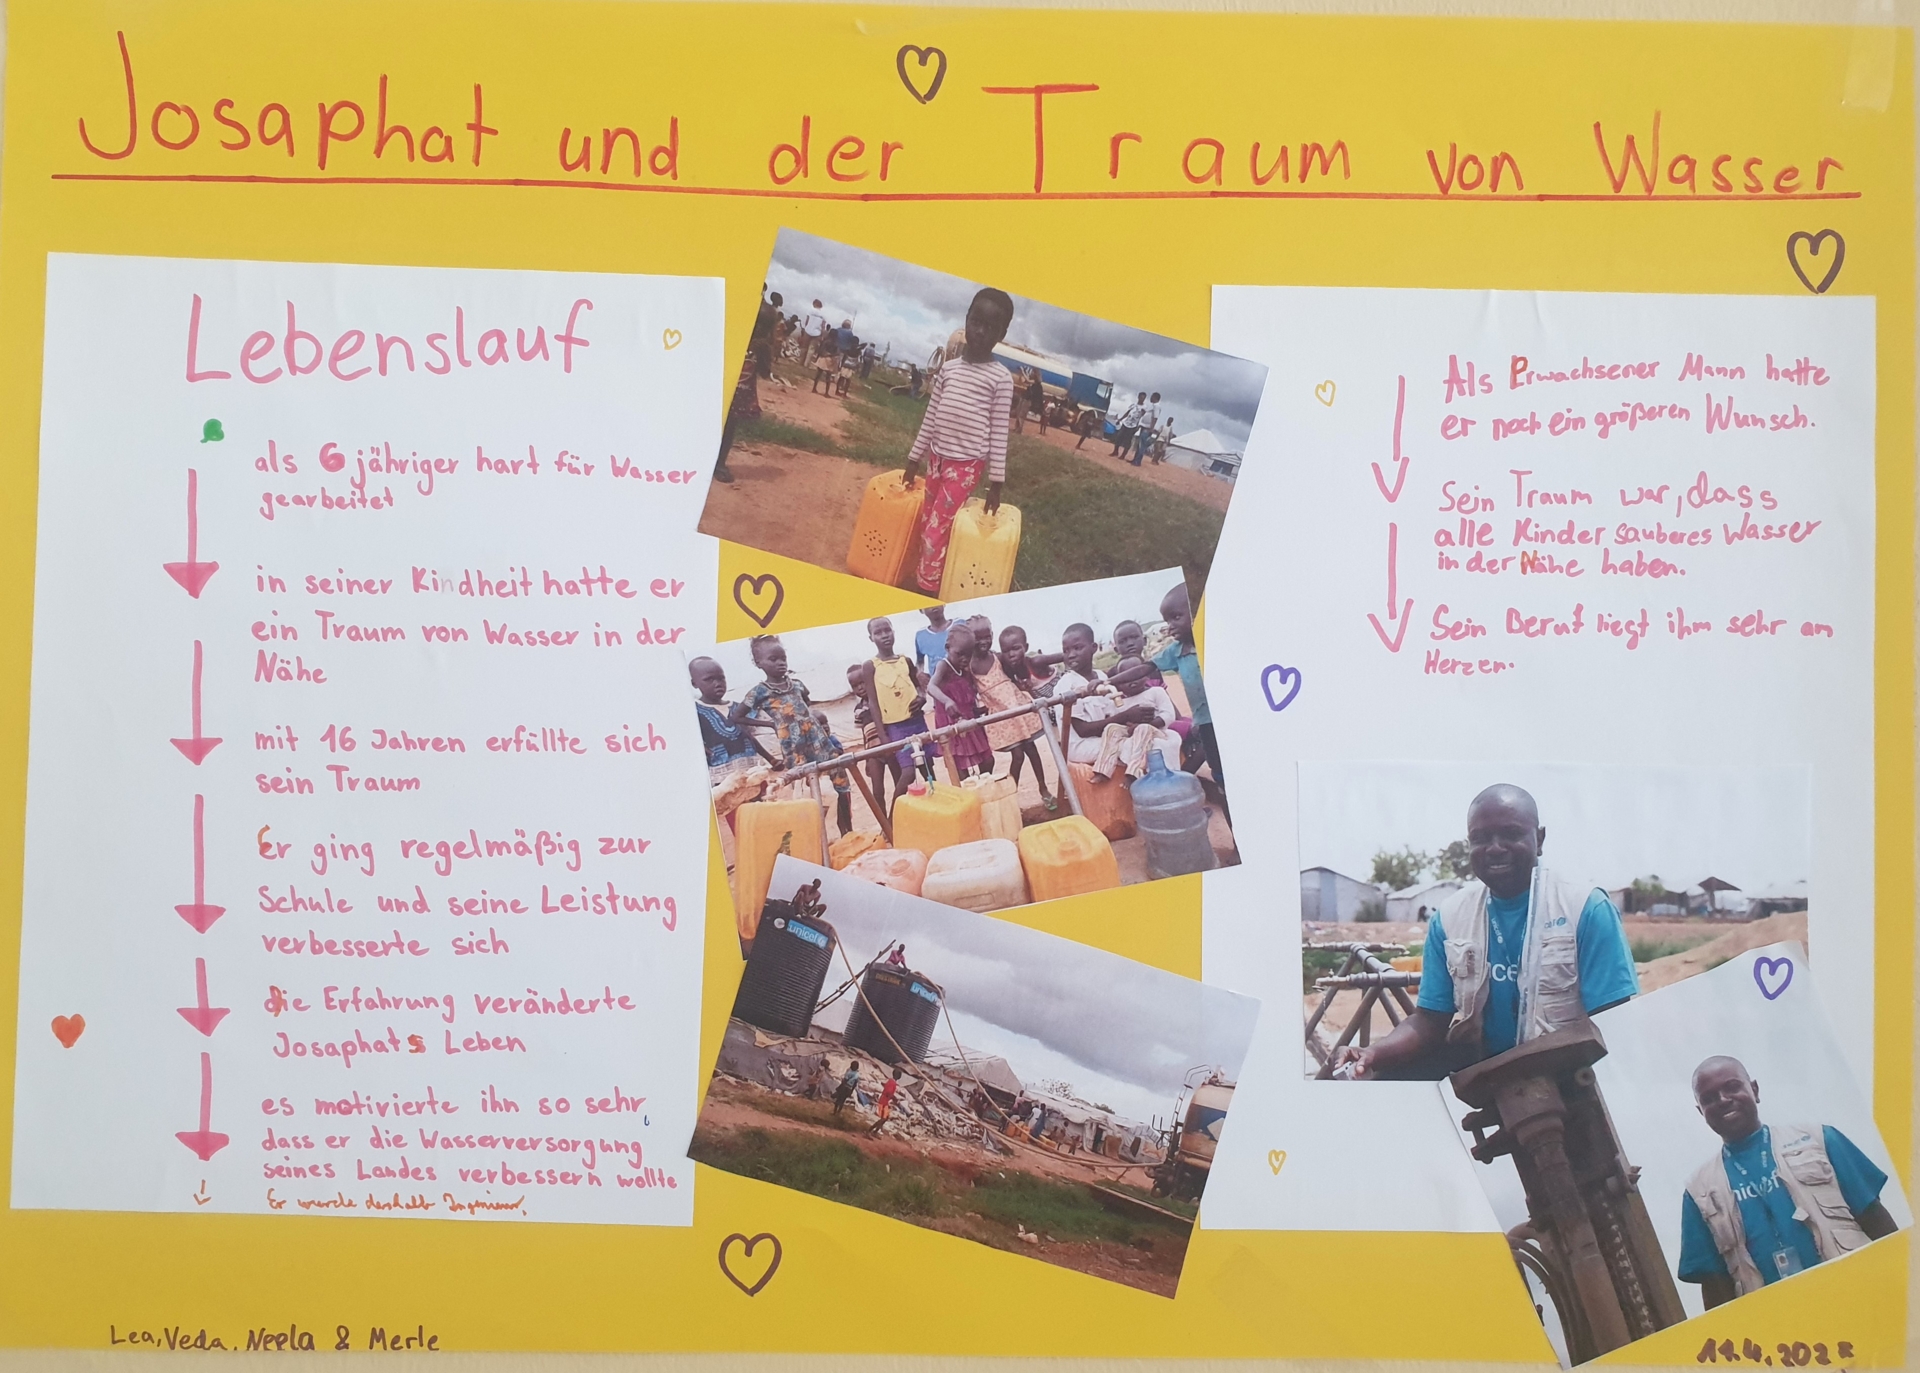 Josaphat und der Traum von Wasser
Lebenslauf
als 6 jähriger hart für Wasser
gearbeitet
in seiner Kindheit hatte er
ein Traum von Wasser in der
Nähe
mit 16 Jahren erfüllte sich
sein Traum
Er ging regelmäßig zur
Schule und seine Leistung
verbesserte sich
die Erfahrung veränderte
Josaphats Leben
es motivierte ihn so sehr,
dass er die Wasserversorgung
seines Landes verbessern wollte
Er wurde deshalb Ingenieur.
unicef
unicef
Als Erwachsener Mann hatte
er noch ein größeren Wunsch.
Sein Traum war, dass
alle Kinder sauberes Wasser
in der Nähe haben.
Sein Beruf liegt ihm sehr am
Herzen.
unicef
Lea, Veda, Neela & Merle